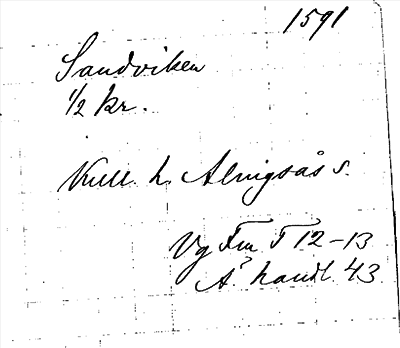 1591
Sandviken
1/2 kr.
Kull. h. Alingsås s.
Vg Fm T 12-13
Ä. handl. 43